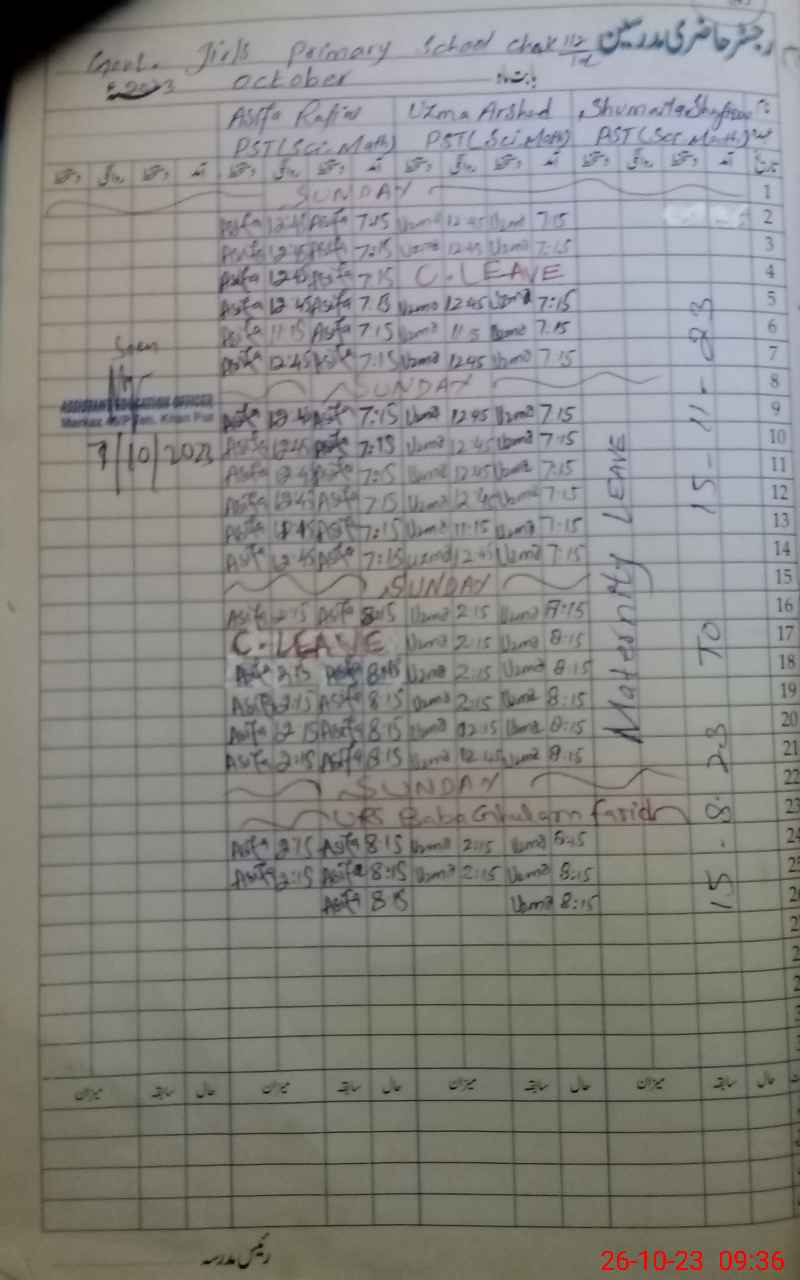 رجسٹر حاضری مدرسین
Govt. Girls Primary School chak 112/1L
2023 October بابت ماہ
Asifa Rafiq Uzma Arshad Shumaila
PST(Sci.Math) PST(Sci.Math) PST(Sci.Math)
دستخط روانگی دستخط آمد دستخط روانگی دستخط آمد دستخط روانگی دستخط آمد دستخط روانگی دستخط آمد تاریخ
SUNDAY 1
Asifa 12:45 Asifa 7:15 Uzma 12:45 Uzma 7:15 2
Asifa 12:45 Asifa 7:15 Uzma 12:45 Uzma 7:15 3
Asifa 12:45 Asifa 7:15 C.LEAVE 4
Asifa 12:45 Asifa 7:15 Uzma 12:45 Uzma 7:15 5
Asifa 11:15 Asifa 7:15 Uzma 11:15 Uzma 7:15 6
Asifa 12:45 Asifa 7:15 Uzma 12:45 Uzma 7:15 7
SUNDAY 8
Asifa 12:45 Asifa 7:15 Uzma 12:45 Uzma 7:15 9
Asifa 12:45 Asifa 7:15 Uzma 12:45 Uzma 7:15 10
Asifa 12:45 Asifa 7:15 Uzma 12:45 Uzma 7:15 11
Asifa 12:45 Asifa 7:15 Uzma 12:45 Uzma 7:15 12
Asifa Asifa 7:15 Uzma 11:15 Uzma 7:15 13
Asifa 12:45 Asifa 7:15 Uzma 12:45 Uzma 7:15 14
SUNDAY 15
Asifa 2:15 Asifa 8:15 Uzma 2:15 Uzma 16
C.LEAVE Uzma 2:15 Uzma 8:15 17
Asifa 2:15 Asifa 8:15 Uzma 2:15 Uzma 8:15 18
Asifa 2:15 Asifa 8:15 Uzma 2:15 Uzma 8:15 19
Asifa 12:15 Asifa 8:15 Uzma 12:15 Uzma 8:15 20
Asifa 2:15 Asifa 8:15 Uzma 12:45 Uzma 8:15 21
SUNDAY 22
URS Baba Ghulam farid 23
Asifa 2:15 Asifa 8:15 Uzma 2:15 Uzma 8:15 24
Asifa 2:15 Asifa 8:15 Uzma 2:15 Uzma 8:15 25
Asifa 8:15 Uzma 8:15 26
Maternity LEAVE
15-8-23 TO 15-11-23
Seen
ASSISTANT EDUCATION OFFICER
Khan Pur
7/10/2023
میزان سابقہ حال میزان سابقہ حال میزان سابقہ حال میزان سابقہ حال
رئیس مدرسہ
26-10-23 09:36